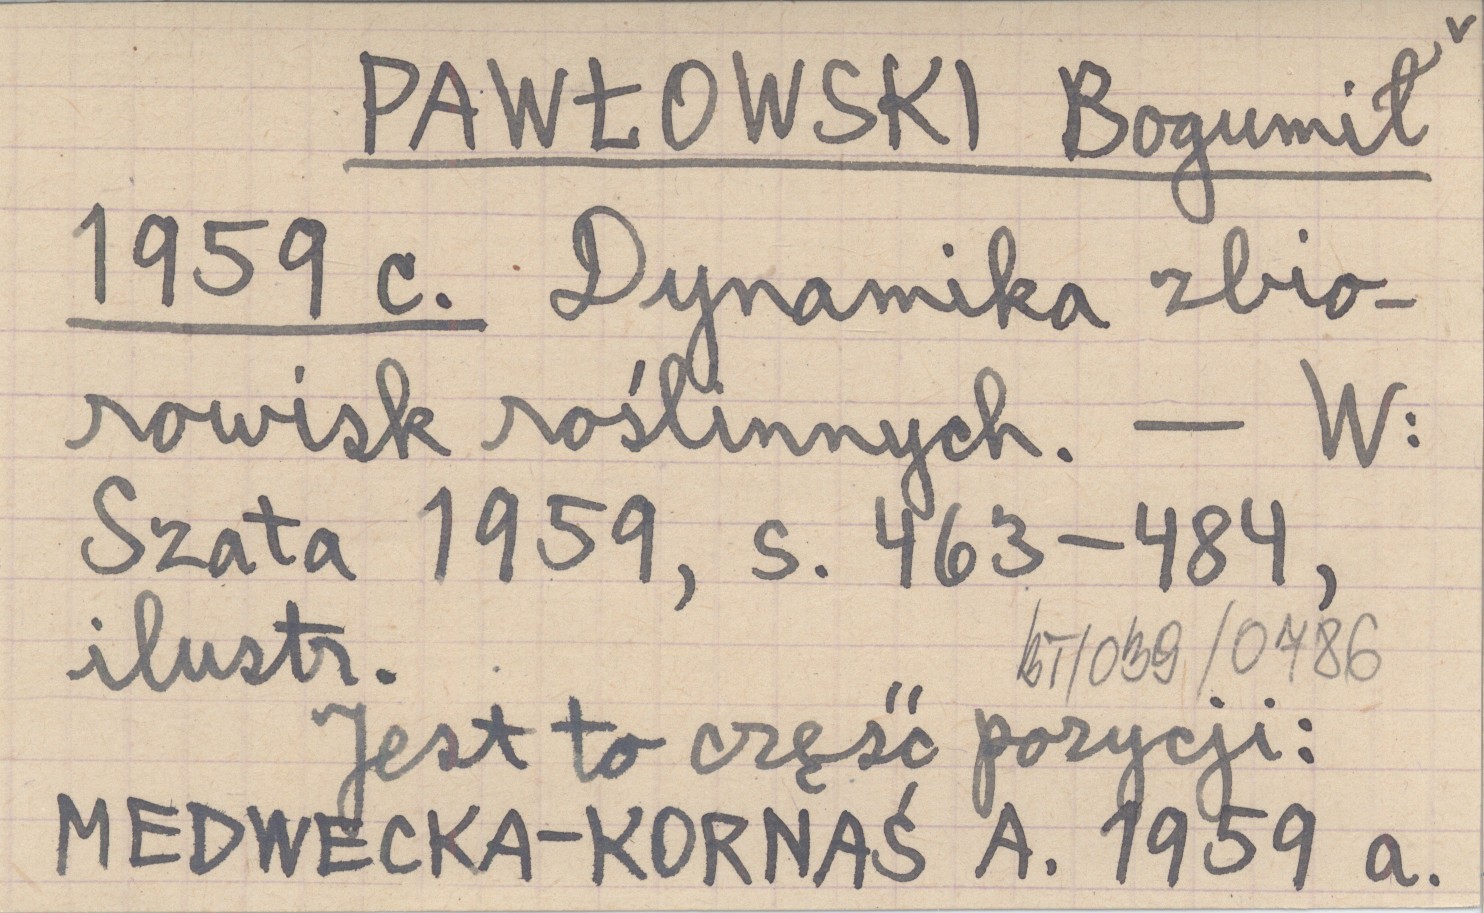 PAWŁOWSKI Bogumił
1959 c. Dynamika zbio-
rowisk roślinnych. — W:
Szata 1959, s. 463-484,
ilustr.
BT/039/0786
Jest to część pozycji:
MEDWECKA-KORNAŚ A. 1959 a.